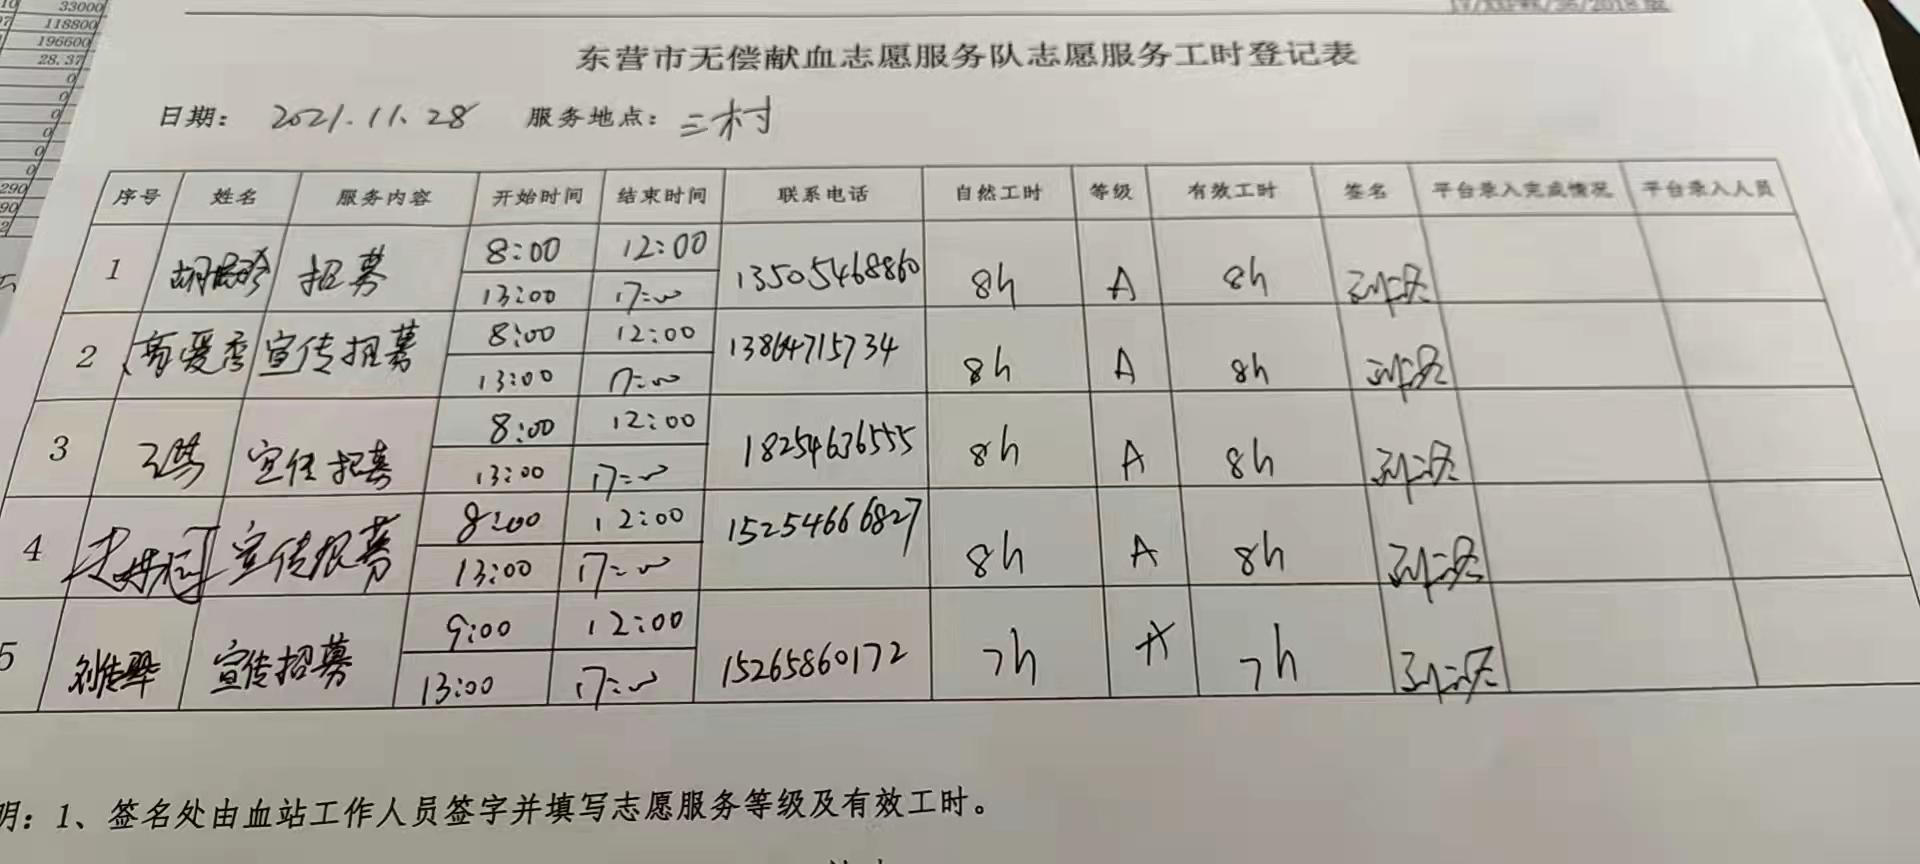 10 33000
118800
196600
28.37
0
0
0
0
0
0
290
90
东营市无偿献血志愿服务队志愿服务工时登记表
日期： 2021.11.28 服务地点：三村
序号 姓名 服务内容 开始时间 结束时间 联系电话 自然工时 等级 有效工时 签名 平台录入完成情况 平台录入人员
1 招募 8:00 12:00 13505468860 8h A 8h
13:00 17:00
2 爱秀 宣传招募 8:00 12:00 13864715734 8h A 8h
13:00 17:00
3 宣传招募 8:00 12:00 18254636555 8h A 8h
13:00 17:00
4 宣传招募 8:00 12:00 15254666827 8h A 8h
13:00 17:00
5 刘 宣传招募 9:00 12:00 15265860172 7h A 7h
13:00 17:00
明：1、签名处由血站工作人员签字并填写志愿服务等级及有效工时。